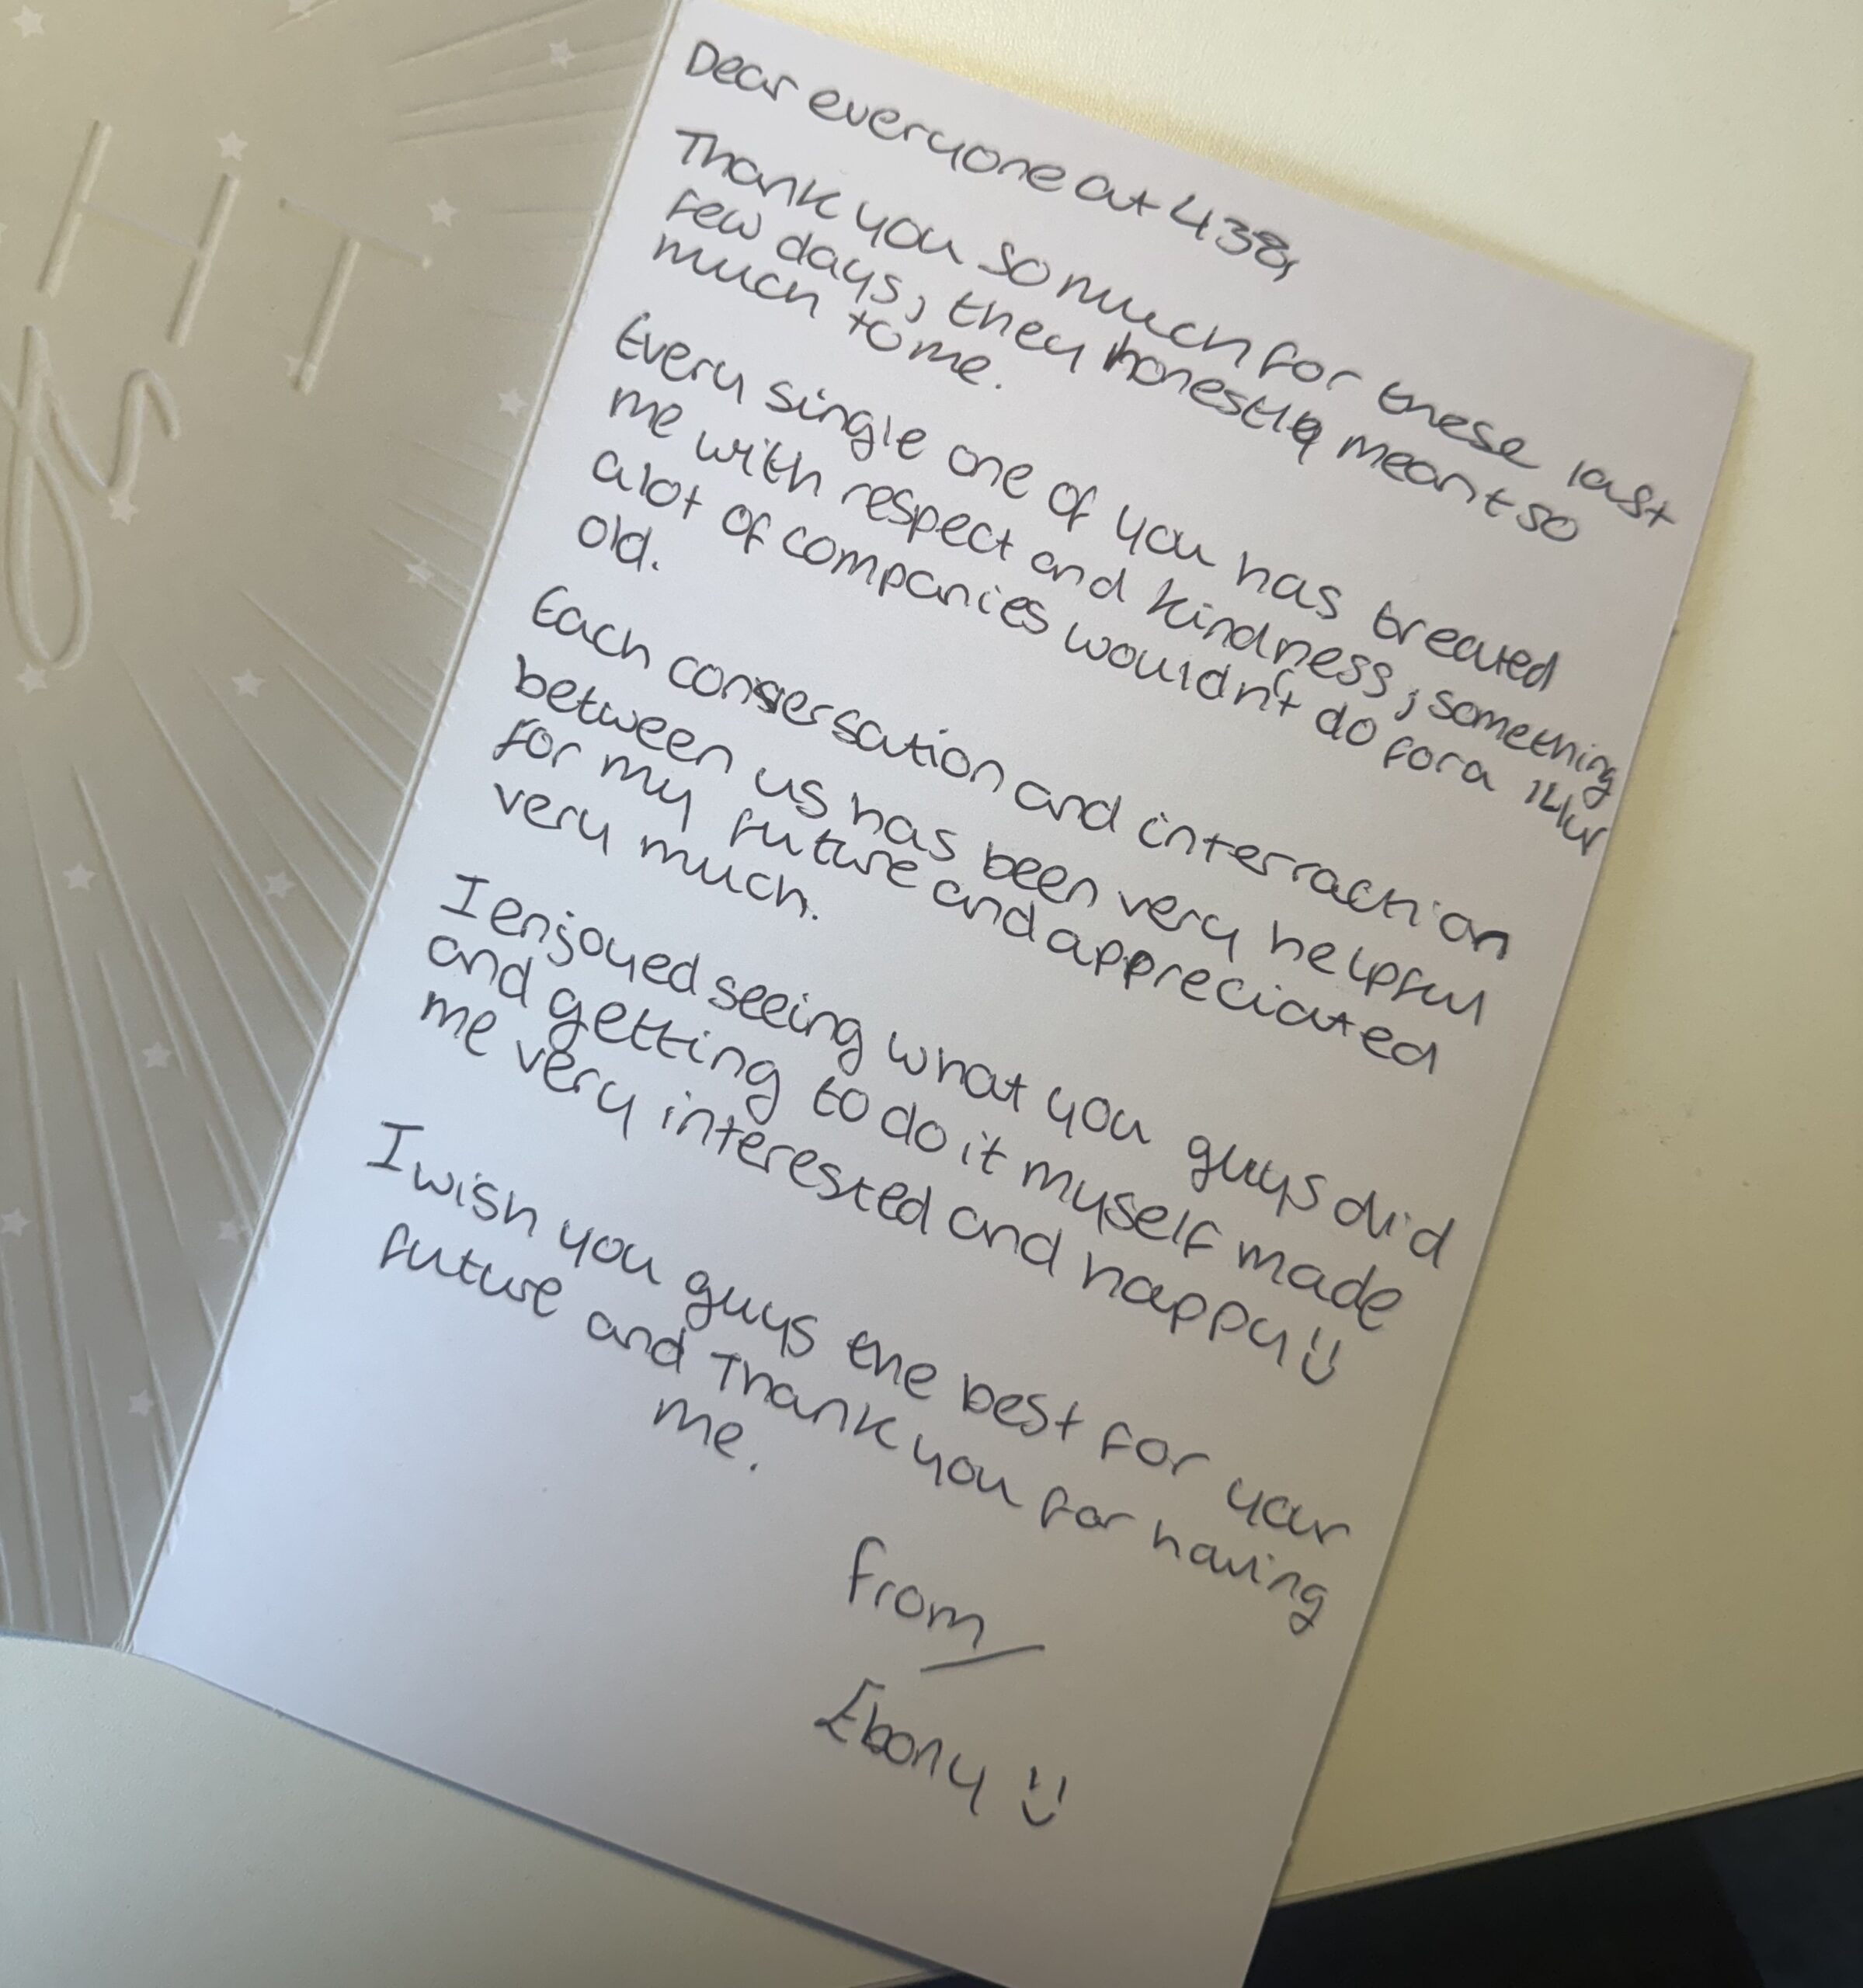 Dear everyone at 438,
Thank you so much for these last
few days, they honestly meant so
much to me.
Every single one of you has treated
me with respect and kindness, something
alot of companies wouldn't do for a 14yr
old.
Each conversation and interraction
between us has been very helpful
for my future and appreciated
very much.
I enjoyed seeing what you guys did
and getting to do it myself made
me very interested and happy :)
I wish you guys the best for your
future and Thank you for having
me.
from
Ebony :)